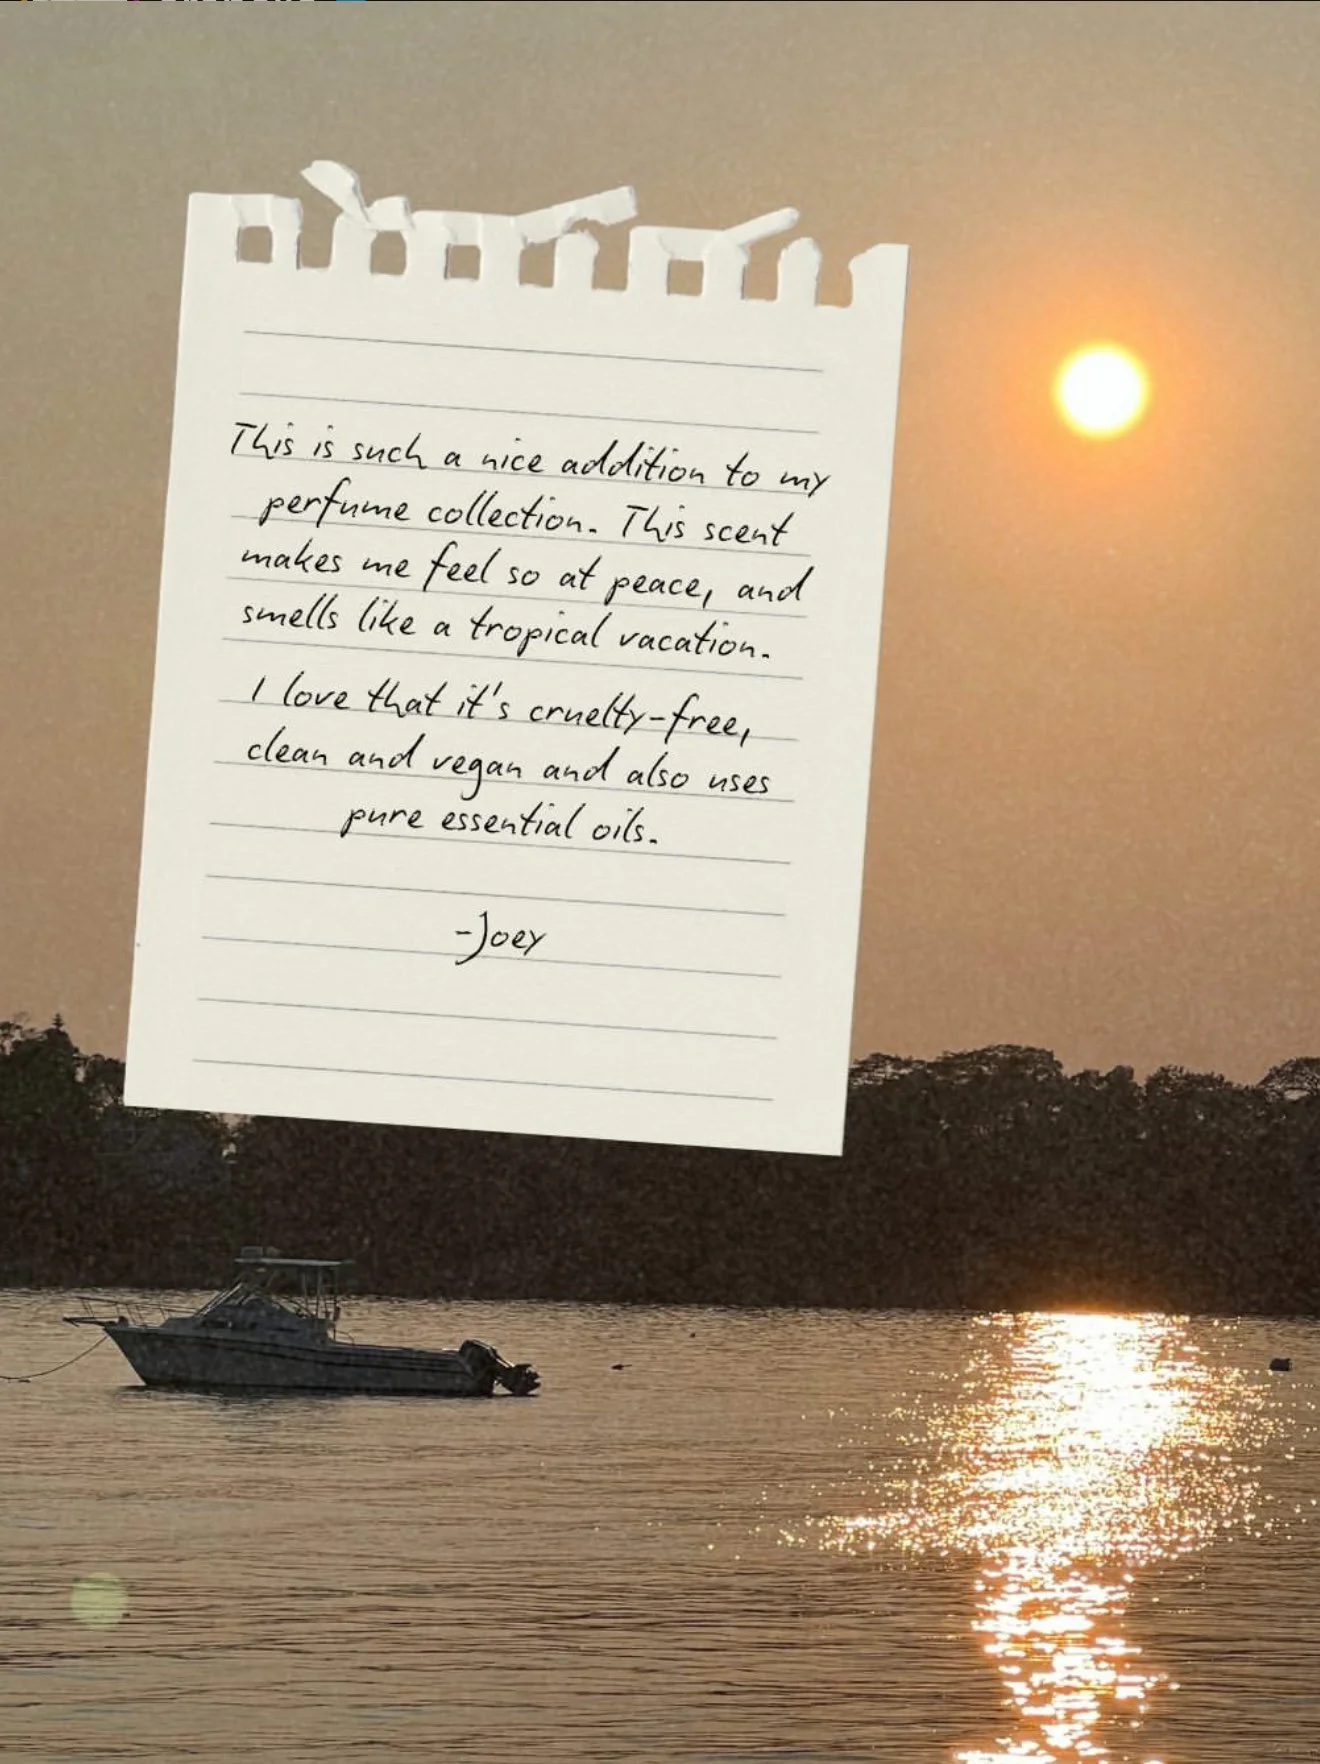 This is such a nice addition to my
perfume collection. This scent
makes me feel so at peace, and
smells like a tropical vacation.
I love that it's cruelty-free,
clean and vegan and also uses
pure essential oils.
-Joey